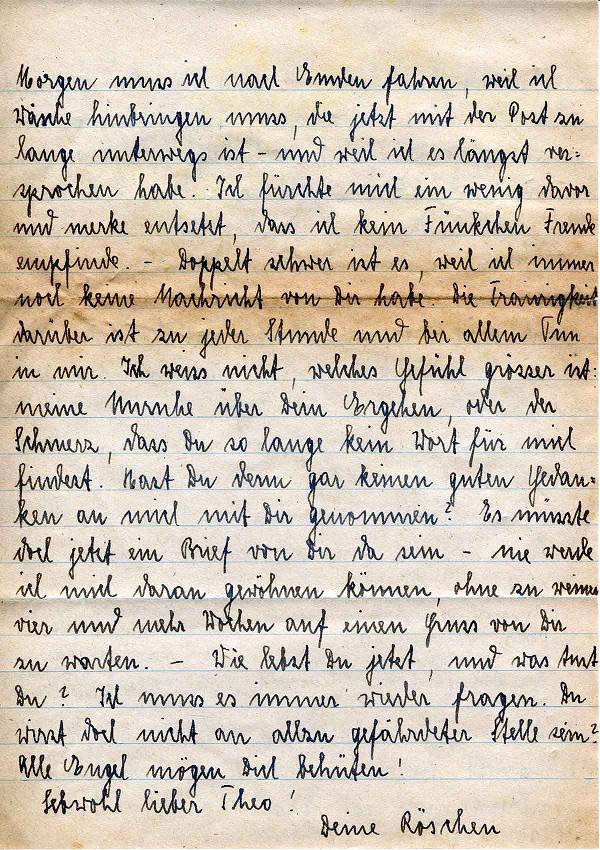 Morgen muss ich nach Emden fahren, weil ich
Wäsche hinbringen muss, die jetzt mit der Post zu
lange unterwegs ist – und weil ich es längst ver-
sprochen habe. Ich fürchte mich ein wenig davor
und merke entsetzt, dass ich kein Fünkchen Freude
empfinde. – Doppelt schwer ist es, weil ich immer
noch keine Nachricht von Dir habe. Die Traurigkeit
darüber ist zu jeder Stunde und bei allem Tun
in mir. Ich weiss nicht, welches Gefühl grösser ist:
meine Unruhe über Dein Ergehen, oder der
Schmerz, dass Du so lange kein Wort für mich
findest. Hast Du denn gar keinen guten Gedan-
ken an mich mit Dir genommen? Es müsste
doch jetzt ein Brief von Dir da sein – nie werde
ich mich daran gewöhnen können, ohne zu weinen
vier und mehr Wochen auf einen Gruss von Dir
zu warten. – Wie lebst Du jetzt, und was tust
Du? Ich muss es immer wieder fragen. Du
wirst doch nicht an allzu gefährdeter Stelle sein?
Alle Engel mögen Dich behüten!
Lebwohl lieber Theo!
Deine Röschen